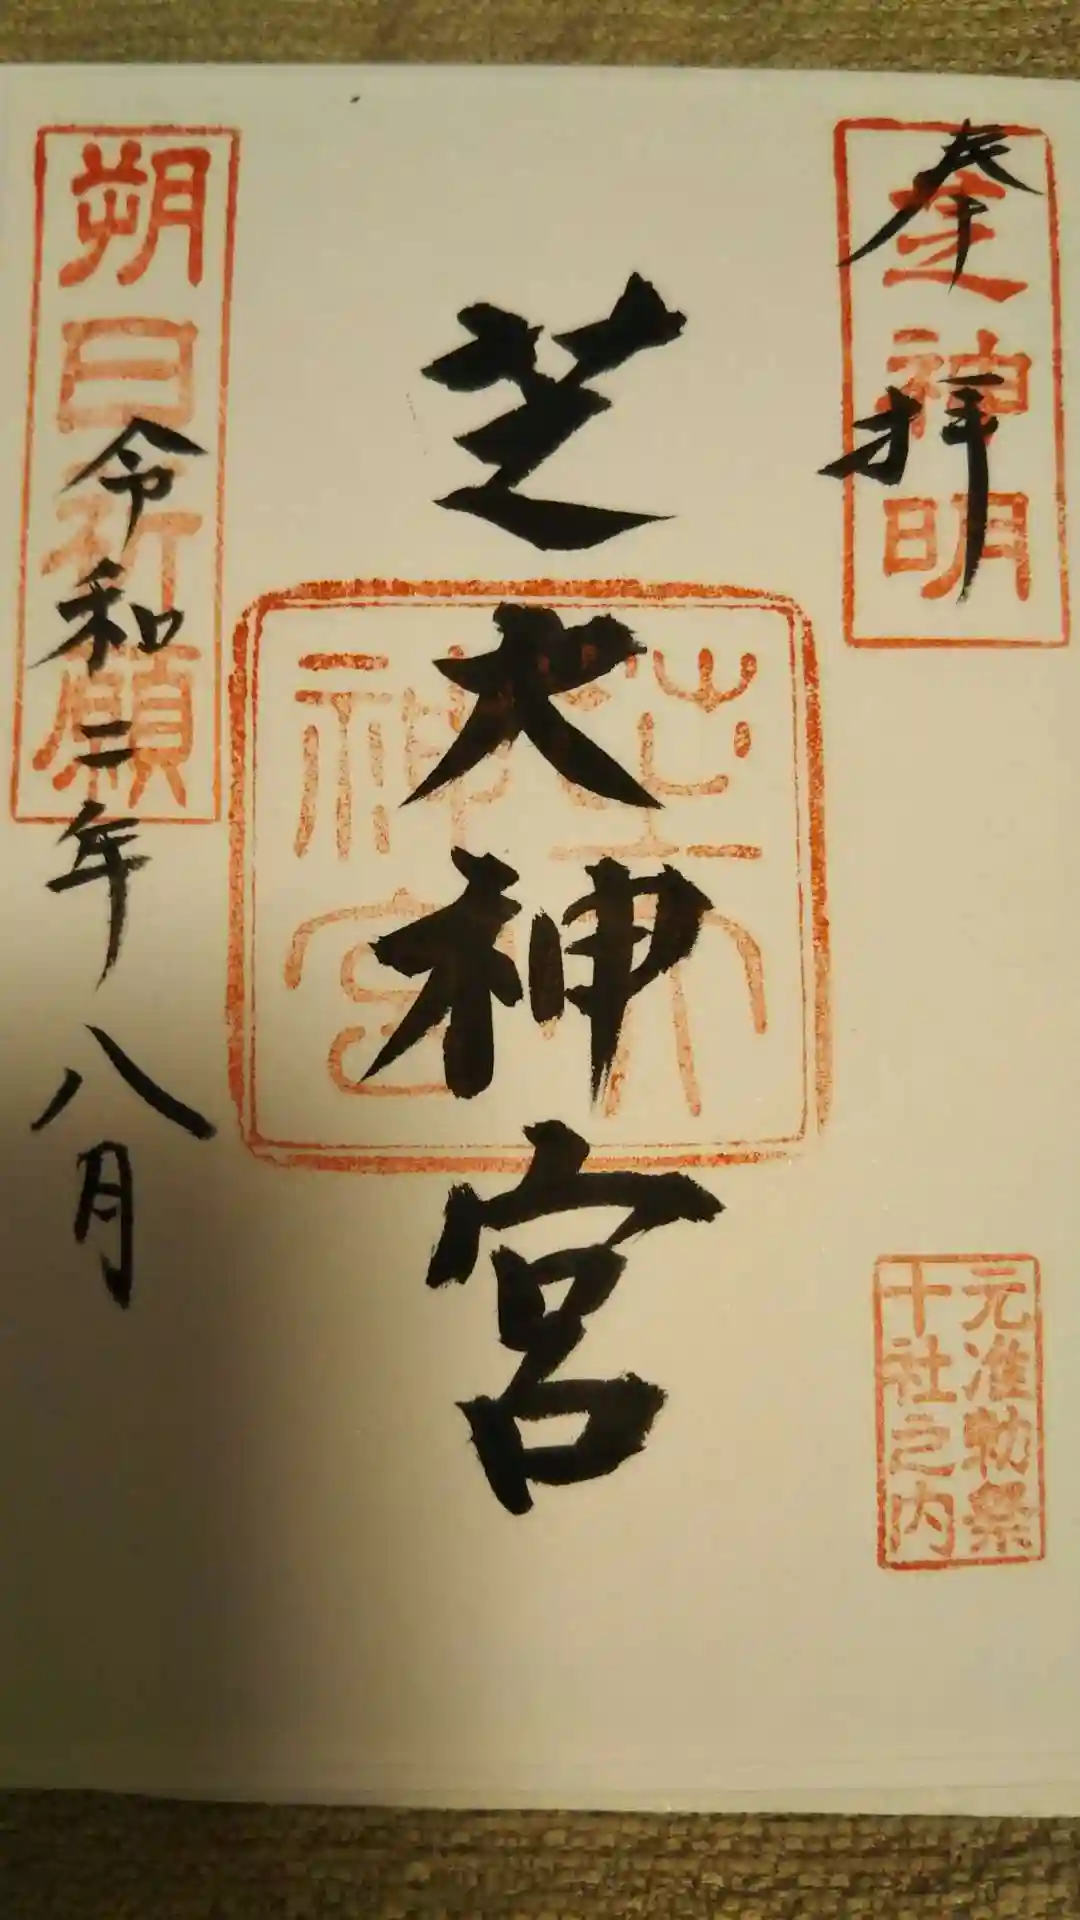 奉拝
芝神明
芝大神宮
芝大神宮
元准勅祭
十社之内
朔日祈願
令和二年八月